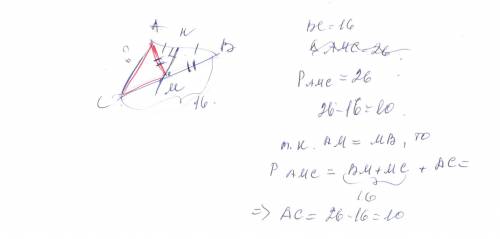 A
К
В
М
С
16
ВС = 16
AMC = 26
P AMC = 26
26 - 16 = 10
т.к. AM = MB, то
P AMC = BM + MC + AC =
16
=> AC = 26 - 16 = 10